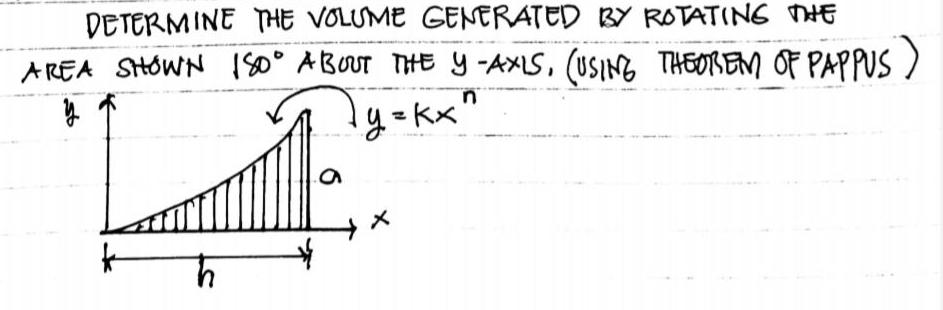 DETERMINE THE VOLUME GENERATED BY ROTATING THE
AREA SHOWN 180° ABOUT THE y-AXIS. (USING THEOREM OF PAPPUS)
y
y = kxⁿ
a
x
h